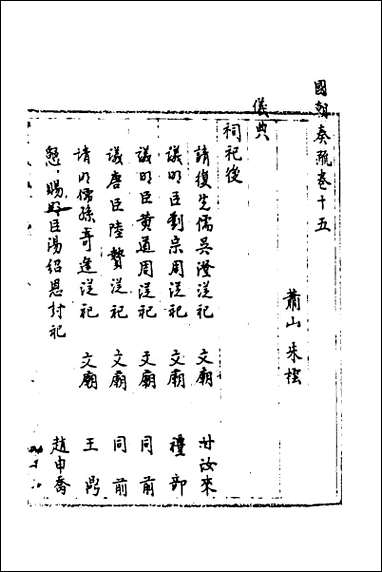 國朝奏疏卷十五
蕭山 朱橒
儀典
祠祀後
請復先儒吳澄従祀 文廟 甘汝來
議明臣劉宗周従祀 文廟 禮部
議明臣黄道周従祀 文廟 同前
議唐臣陸贄従祀 文廟 同前
請明儒孫奇逢従祀 文廟 王鼎
懇賜明臣湯紹恩封祀 趙申喬